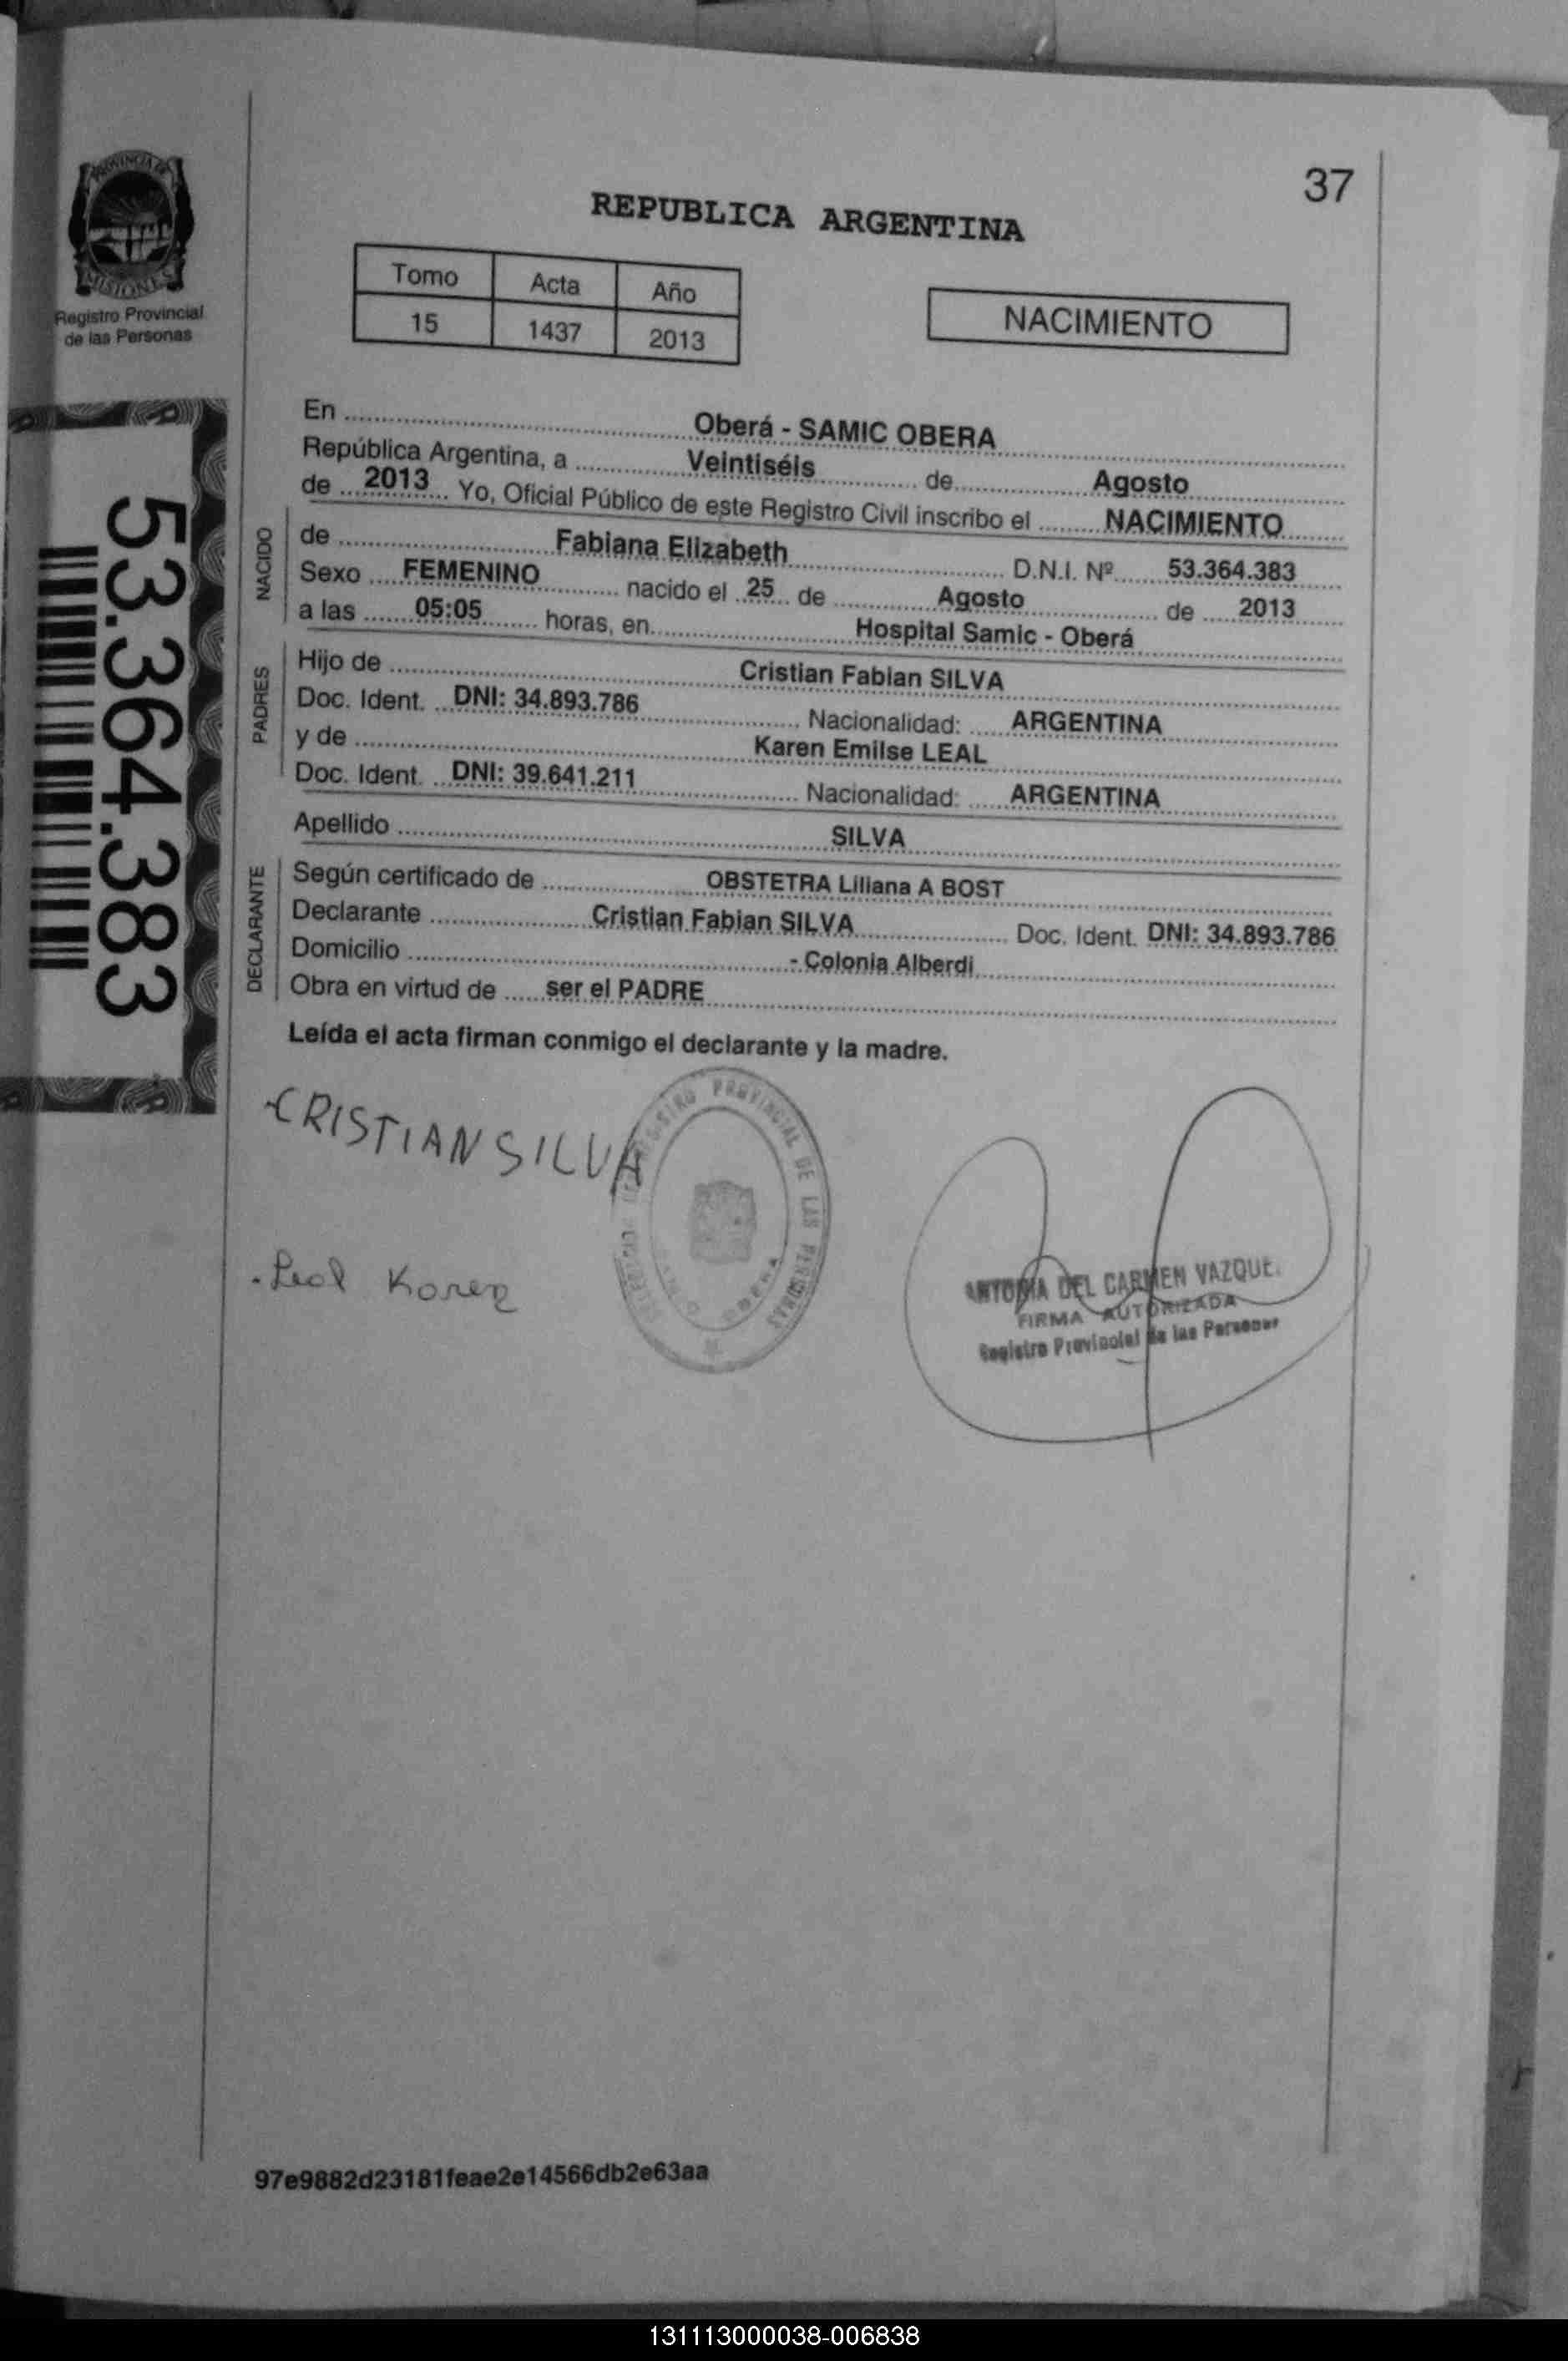 PROVINCIA DE
MISIONES
Registro Provincial
de las Personas
53.364.383
37
REPUBLICA ARGENTINA
Tomo Acta Año
15 1437 2013
NACIMIENTO
En Oberá - SAMIC OBERA
República Argentina, a Veintiséis de Agosto
de 2013 Yo, Oficial Público de este Registro Civil inscribo el NACIMIENTO
NACIDO
de Fabiana Elizabeth D.N.I. Nº 53.364.383
Sexo FEMENINO nacido el 25 de Agosto de 2013
a las 05:05 horas, en Hospital Samic - Oberá
PADRES
Hijo de Cristian Fabian SILVA
Doc. Ident. DNI: 34.893.786 Nacionalidad: ARGENTINA
y de Karen Emilse LEAL
Doc. Ident. DNI: 39.641.211 Nacionalidad: ARGENTINA
Apellido SILVA
DECLARANTE
Según certificado de OBSTETRA Liliana A BOST
Declarante Cristian Fabian SILVA Doc. Ident. DNI: 34.893.786
Domicilio - Colonia Alberdi
Obra en virtud de ser el PADRE
Leída el acta firman conmigo el declarante y la madre.
CRISTIAN SILVA
REGISTRO PROVINCIAL DE LAS PERSONAS
OBERA
Leal Karen
DEL CARMEN VAZQUE
FIRMA AUTORIZADA
Registro Provincial de las Personas
97e9882d23181feae2e14566db2e63aa
131113000038-006838